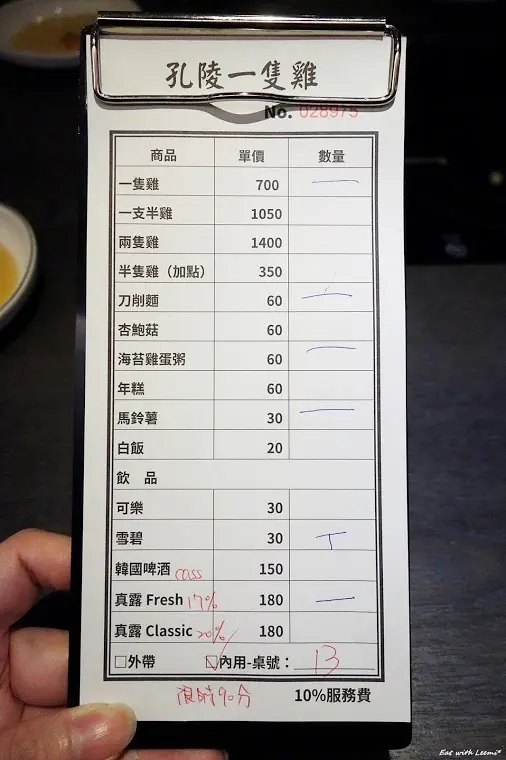 孔陵一隻雞
No. 028975
商品 單價 數量
一隻雞 700 一
一支半雞 1050
兩隻雞 1400
半隻雞（加點） 350
刀削麵 60 一
杏鮑菇 60
海苔雞蛋粥 60 一
年糕 60
馬鈴薯 30 一
白飯 20
飲 品
可樂 30
雪碧 30 T
韓國啤酒 cass 150
真露 Fresh 17% 180 一
真露 Classic 20% 180
□外帶 ☑內用-桌號： 13
限時90分 10%服務費
Eat with Leemi*